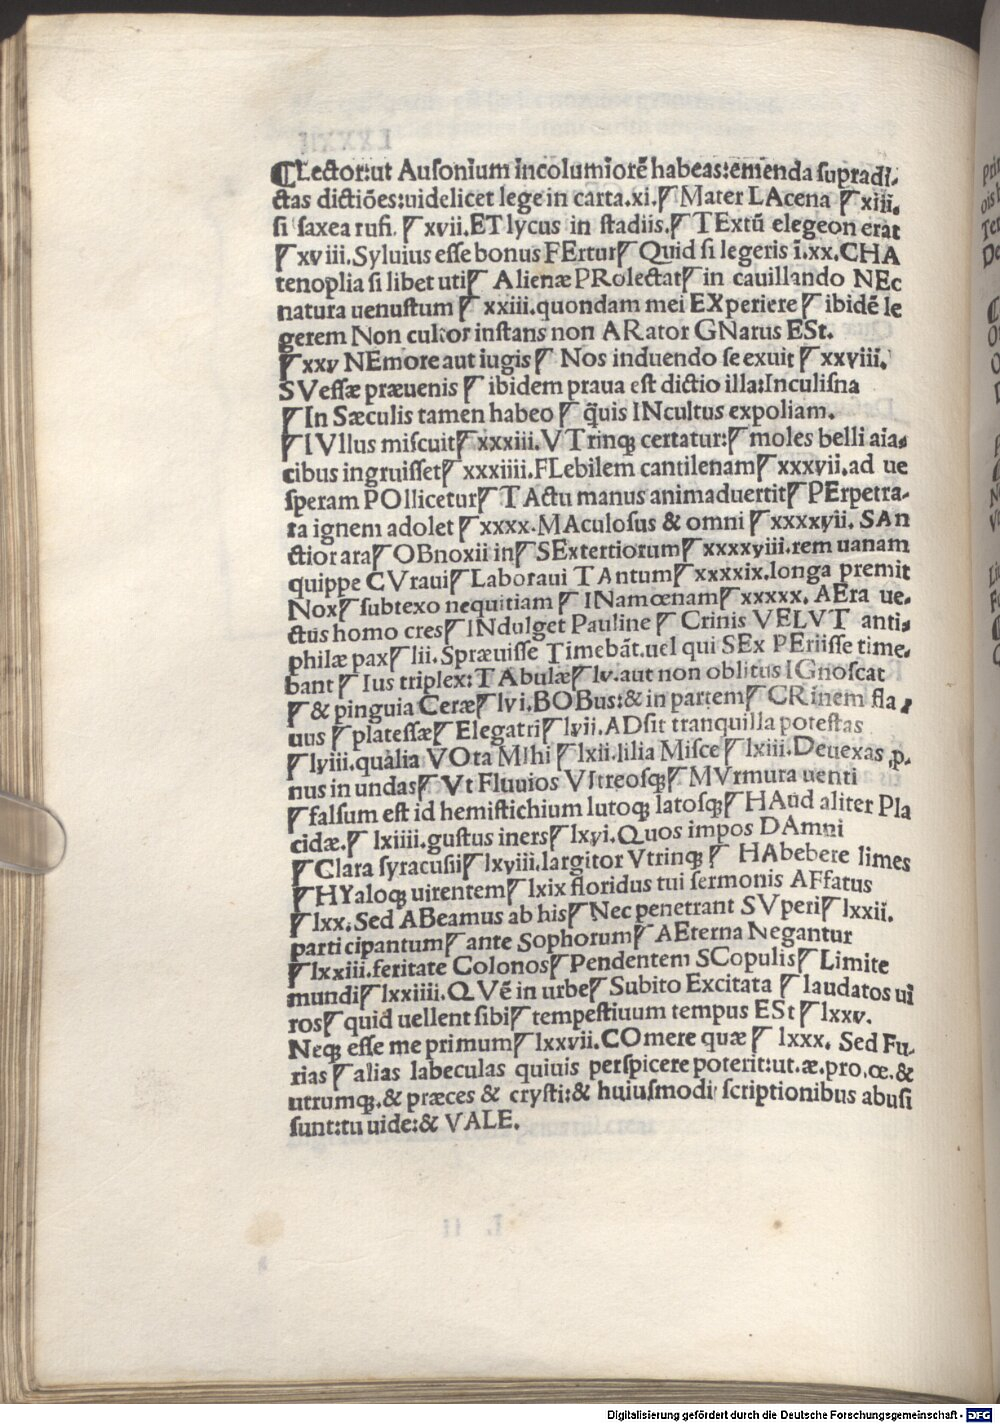 ¶Lector:ut Auſonium incolumiorē habeas:emēnda ſupradi-
ctas dictiōes:uidelicet lege in carta.xi.¶Mater LAcena ¶xiii.
ſi ſaxea rufi. ¶xvii.ETlycus in ſtadiis.¶TExtū elegeon erat
¶xviii.Syluius eſſe bonus FErtur¶ Quid ſi legeris ī.xx.CHA
tenoplia ſi libet uti¶ Alienæ PRolectat¶ in cauillando NEc
natura uenuſtum ¶ xxiii.quondam mei EXperiere ¶ ibidē le
gerem Non cultor inſtans non ARator GNatus ESt.
¶xxv NEmore aut iugis¶ Nos induendo ſe exuit ¶ xxviii.
SVeſſæ præuenis ¶ ibidem praua eſt dictio illa:Inculiſna
¶In Sæculis tamen habeo ¶ q̄uis INcultus expoliam.
¶IVllus miſcuit¶xxxiii.VTrinq; certatur:¶moles belli aia-
cibus ingruiſſet¶ xxxiiii.FLebilem cantilenam¶xxxvii.ad ue
ſperam POllicetur¶TActu manus animaduertit¶PErpetra-
ra ignem adolet ¶xxxx.MAculoſus & omni ¶xxxxvii. SAn
ctior ara¶OBnoxii in¶SExtertiorum¶xxxxviii.rem uanam
quippe CVraui¶Laboraui TAntum¶xxxxix.longa premit
Nox¶ſubtexo nequitiam ¶ INamœnam¶xxxxx. AEra ue-
ctus homo cres¶INdulget Pauline ¶ Crinis VELVT anti-
philæ pax¶lii. Spræuiſſe Timebāt.uel qui SEx PEriiſſe time-
bant ¶ Ius triplex:TAbulæ¶lv.aut non oblitus IGnoſcat
¶ & pinguia Ceræ¶lvi.BOBus:& in partem¶CRinem fla-
uus ¶plateſſæ¶ Elegatri¶lvii.ADſit tranquilla poteſtas
¶lviii.quàlia VOta MIhi ¶lxii.lilia Miſce ¶lxiii.Deuexas ,p.
nus in undas¶ Vt Fluuios VItreoſq;¶MVrmura uenti
¶falſum eſt id hemiſtichium lutoq; latoſq;¶HAud aliter Pla
cidæ.¶ lxiiii.guſtus iners¶lxvi.Quos impos DAmni
¶Clara ſyracuſii¶lxviii.largitor Vtrinq; ¶ HAbebere limes
¶HYaloq; uirentem¶lxix floridus tui ſermonis AFfatus
¶lxx.Sed ABeamus ab his¶Nec penetrant SVperi¶lxxii.
parti cipantum¶ante Sophorum¶AEterna Negantur
¶lxxiii.feritate Colonos¶Pendentem SCopulis¶Limite
mundi¶lxxiiii.QVē in urbe¶Subito Excitata ¶laudatos ui
ros¶quid uellent ſibi¶tempeſtiuum tempus ESt¶lxxv.
Neq; eſſe me primum¶lxxvii.COmere quæ ¶ lxxx. Sed Fu-
rias ¶alias labeculas quiuis perſpicere poterit:ut.æ.pro.œ.&
utrumq;.& præces & cryſti:& huiuſmodi ſcriptionibus abuſi
ſunt:tu uide:& VALE.
Digitalisierung gefördert durch die Deutsche Forschungsgemeinschaft - DFG